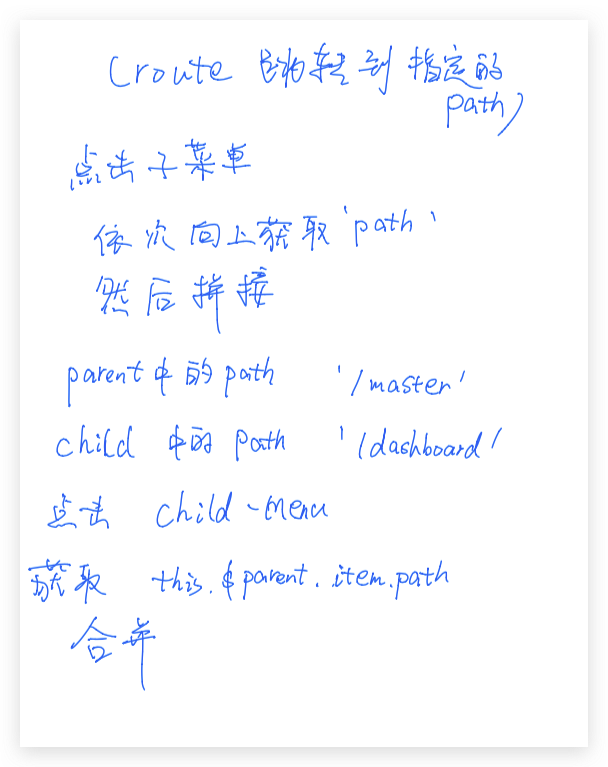 (route 跳转到指定的
path)
点击子菜单
依次向上获取'path'
然后拼接
parent中的path '/master'
child 中的 path '/dashboard/
点击 child-menu
获取 this.$parent.item.path
合并